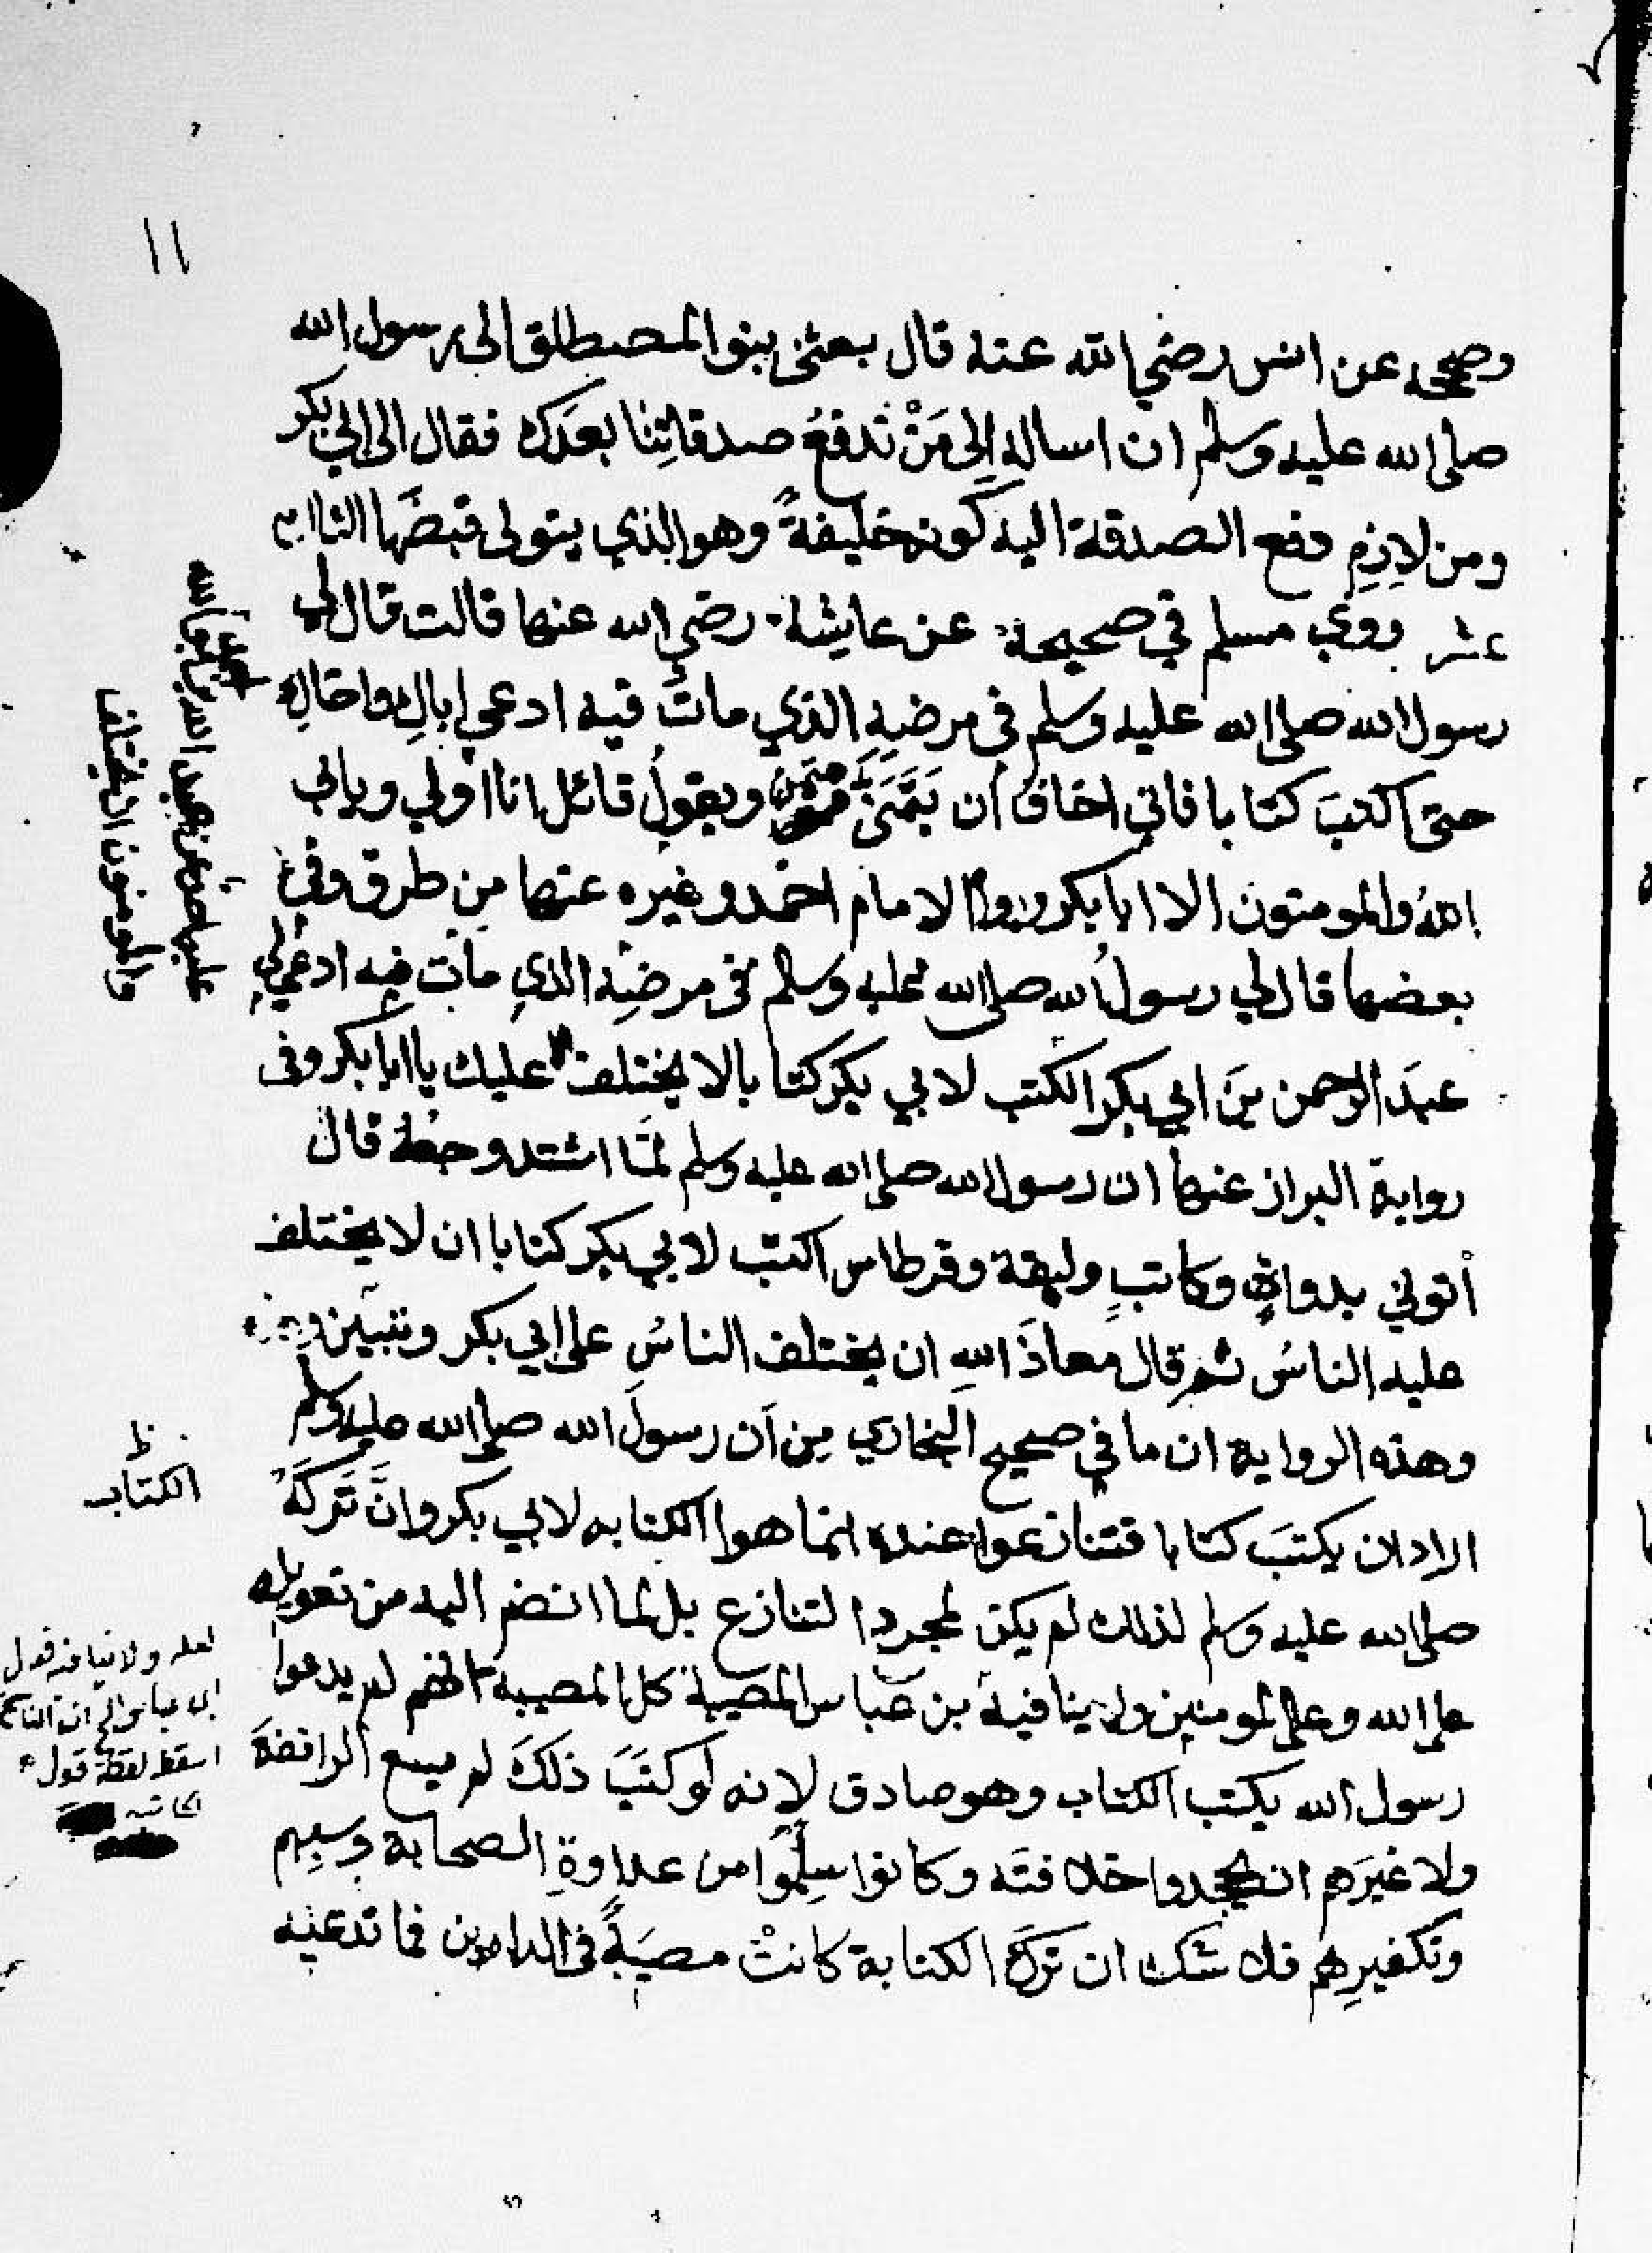 ١١
وصححه عن انس رضي الله عنه قال بعثني بنو المصطلق الى رسول الله
صلى الله عليه وسلم ان اساله إلى مَنْ ندفعُ صدقاتِنا بعدَك فقال الى ابي بكر
ومن لازم دفع الصدقة اليه كونه خليفةً وهو الذي يتولى قبضَها الثالث
عشر روى مسلم في صحيحه عن عايشة رضي الله عنها قالت قال لي
رسول الله صلى الله عليه وسلم في مرضِهِ الذي مات فيه ادعي لي اباكِ واخاكِ
حتى اكتبَ كتابا فاني اخاف ان يَتَمَنَّى متمن ويقولُ قائل انا اولى ويابى
اللهُ والمومنون الا ابا بكر ورواه الامام احمد وغيره عنها مِن طرق وفي
بعضها قال لي رسولُ الله صلى الله عليه وسلم في مرضِه الذي مات فيه ادعي لي
عبدَ الرحمن بنَ ابي بكر اكتب لابي بكر كتابا لا يختلف عليك يا ابا بكر وفي
رواية البزاز عنها ان رسول الله صلى الله عليه وسلم لمَّا اشتد وجعُه قال
أتوني بدواةٍ وكاتبٍ وليقة وقرطاس اكتب لابي بكر كتابا ان لا يختلف
عليه الناسُ ثم قال معاذَ اللهِ ان يختلف الناسُ على ابي بكر وتبين من
وهذه الرواية ان ما في صحيح البخاري مِن أن رسولَ الله صلى الله عليه وسلم
اراد ان يكتبَ كتابا فتنازعوا عنده انما هو الكتابه لابي بكر وانَّ تَركَهُ
صلى الله عليه وسلم لذلك لم يكن لمجرد التنازع بل لما انضم اليه من تعويله
على الله وعلى المومنين ولا ينافيه بن عباس المصيبة كل المصيبة انهم لم يدعوا
رسول الله يكتب الكتاب وهو صادق لانه لو كتَبَ ذلك لم يسع الرافضةَ
ولا غيرَهم ان يجحدوا خلافتَه وكانوا سِلِمُوا من عداوةِ الصحابة وسبِهم
وتكفيرِهم فلا شك ان تركَ الكتابة كانتْ مصيبةً في الدارين فما تدعيه
عليه احد عن عبد الله
والمومنون ان يختلف
ظ
الكتاب
لعله ولا ينافيه قول
ابن عباس الخ ان الناسخ
اسقط لفظة قول
كاتبه